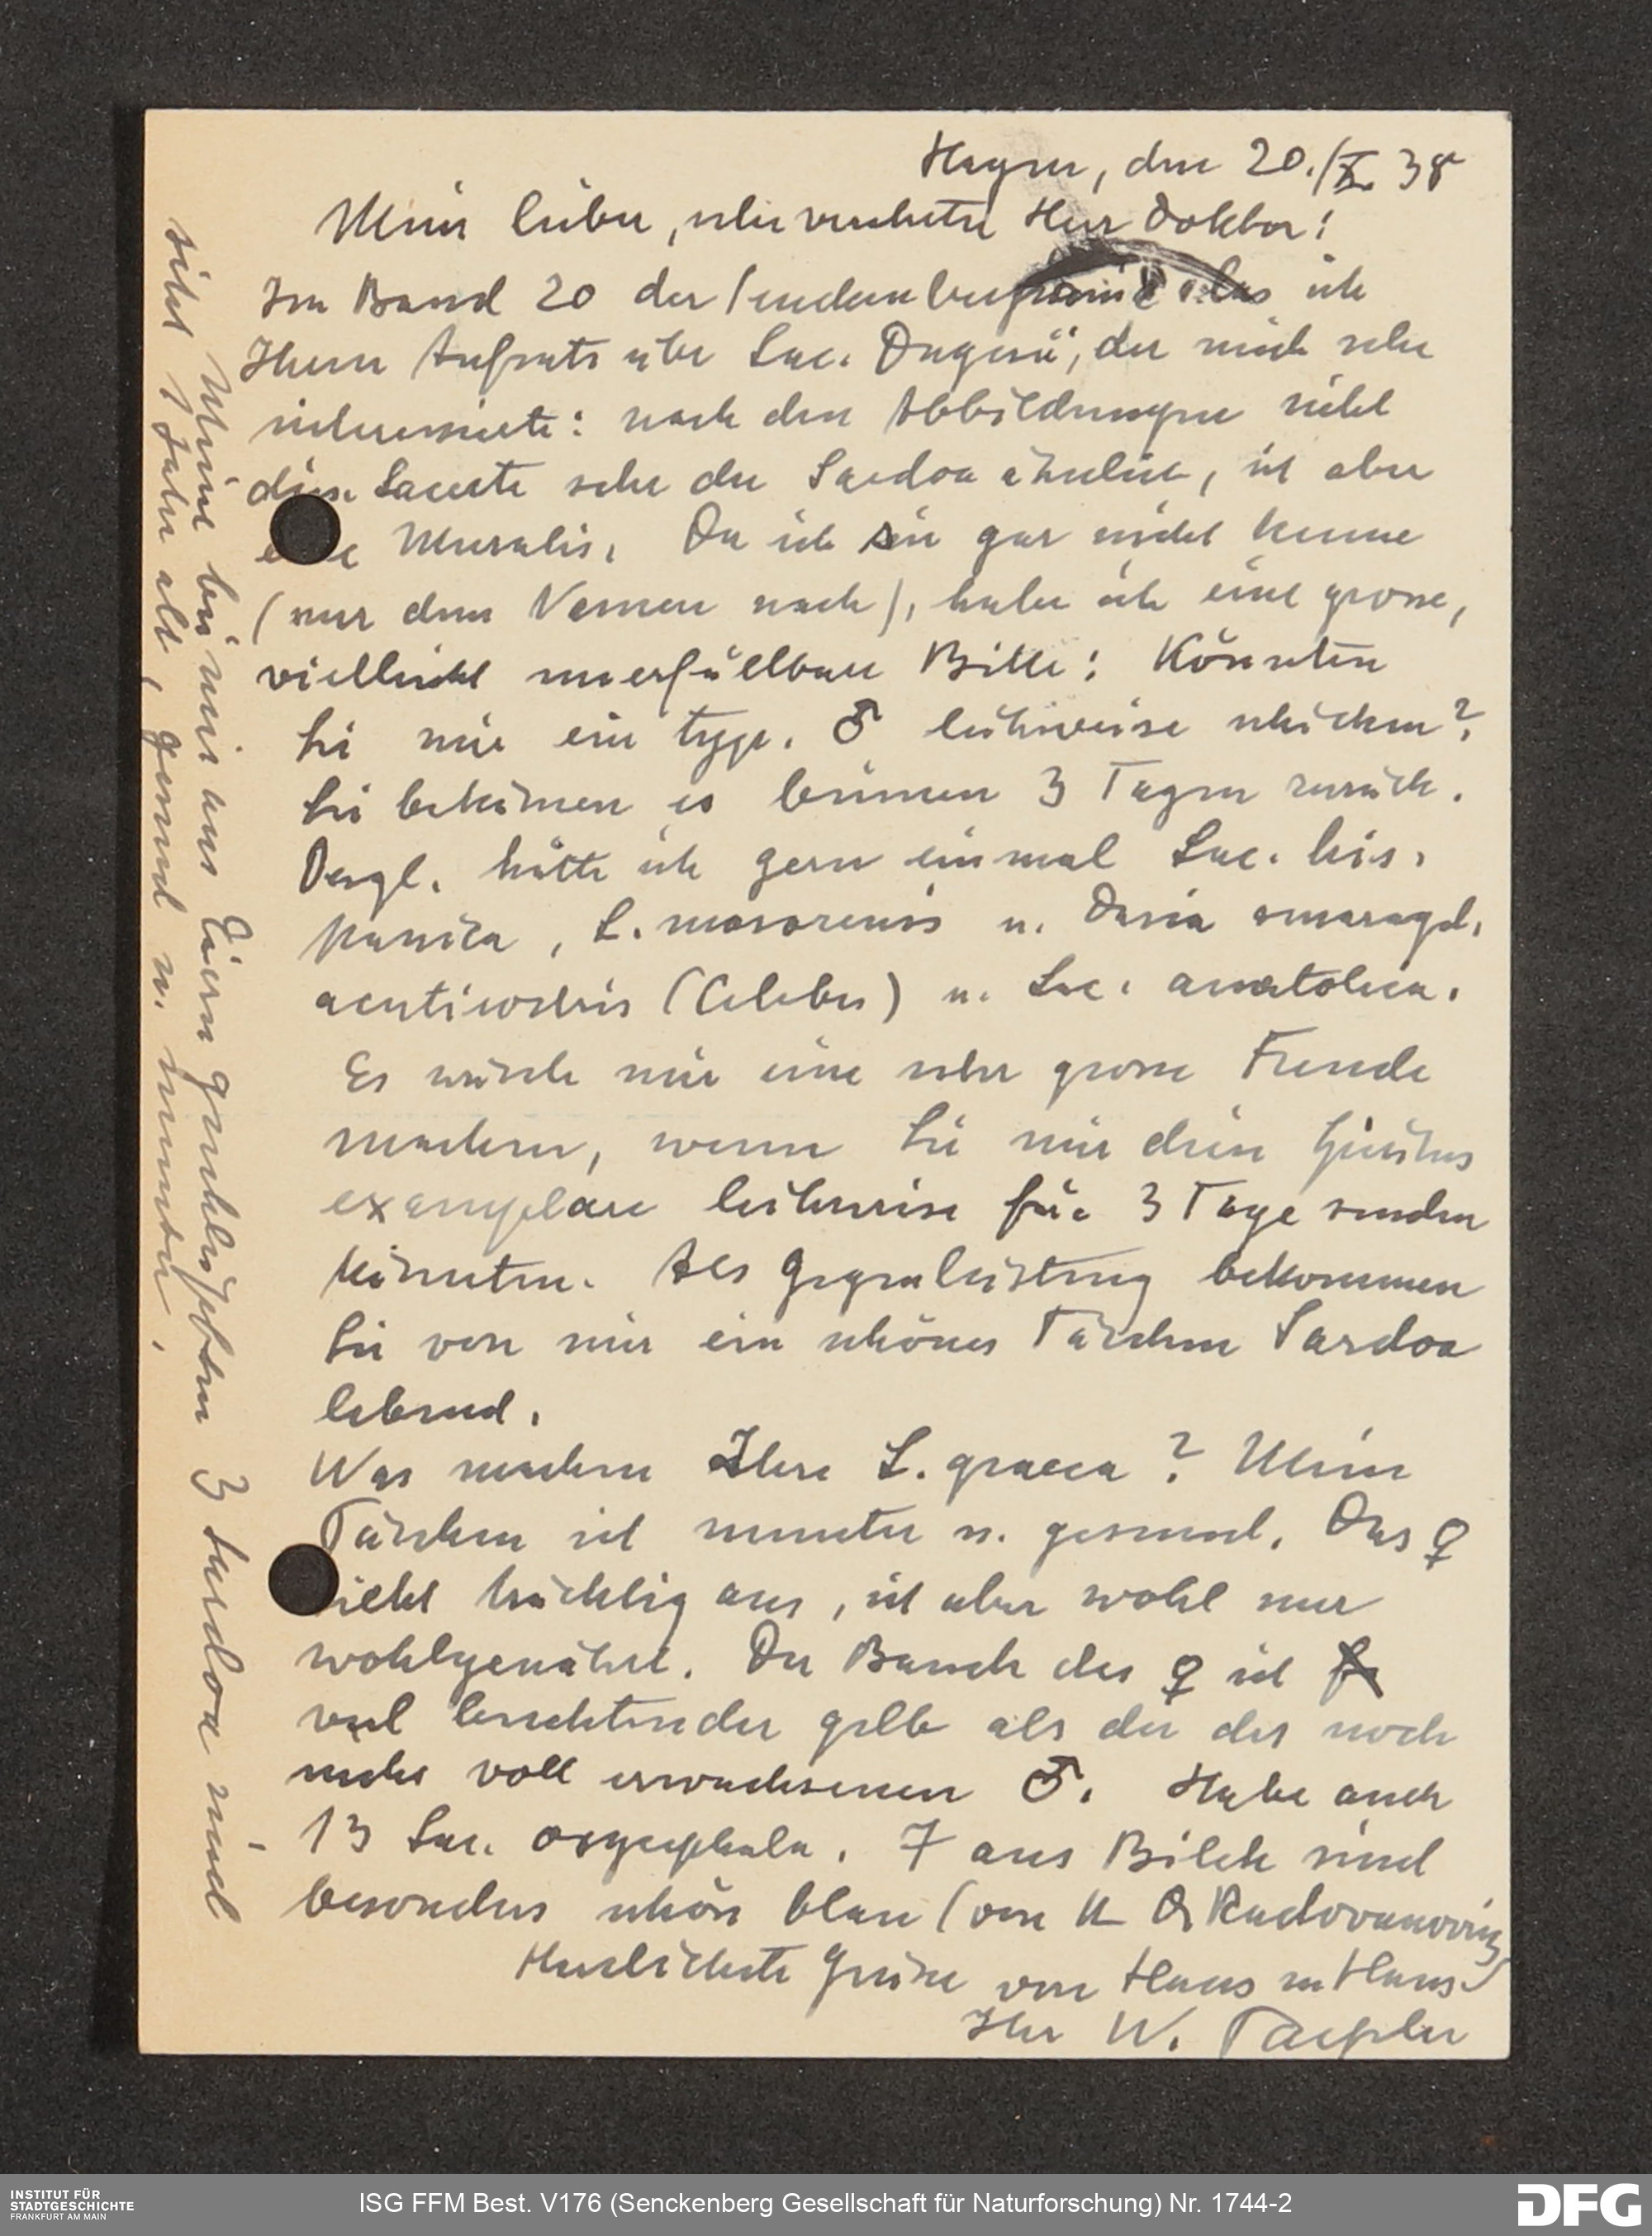 Hagen, den 20./X. 38
Mein lieber, sehr verehrter Herr Doktor!
Im Band 20 der Senckenbergiana las ich
Ihren Aufsatz über Lac. Dugesii, der mich sehr
interessierte: nach den Abbildungen sieht
diese Lacerte sehr der Sardoa ähnlich, ist aber
eine Muralis. Da ich sie gar nicht kenne
(nur dem Namen nach), habe ich eine grosse,
vielleicht unerfüllbare Bitte: Könnten
Sie mir ein typ. ♂ leihweise schicken?
Sie bekämen es binnen 3 Tagen zurück.
Desgl. hätte ich gern einmal Lac. his.
panica, L. mosorensis u. Dasia smaragd.
acutirostris (Celebes) u. Lac. anatolica.
Es würde mir eine sehr grosse Freude
machen, wenn Sie mir diese Spiritus
exemplare leihweise für 3 Tage senden
könnten. Als Gegenleistung bekommen
Sie von mir ein schönes Pärchen Sardoa
lebend.
Was machen Ihre L. graeca? Mein
Pärchen ist munter u. gesund. Das ♀
sieht trächtig aus, ist aber wohl nur
wohlgenährt. Der Bauch des ♀ ist
viel leuchtender gelb als der des noch
nicht voll erwachsenen ♂. Habe auch
13 Lac. oxycephala. 7 aus Bilek sind
besonders schön blau (von H. Dr Radovanović)
Herzlichste Grüsse von Haus zu Haus
Ihr W.
Meine bei mir aus Eiern geschlüpften 3 Sardoa sind
jetzt 1 Jahr alt, gesund u. munter.
INSTITUT FÜR
STADTGESCHICHTE
FRANKFURT AM MAIN
ISG FFM Best. V176 (Senckenberg Gesellschaft für Naturforschung) Nr. 1744-2
DFG